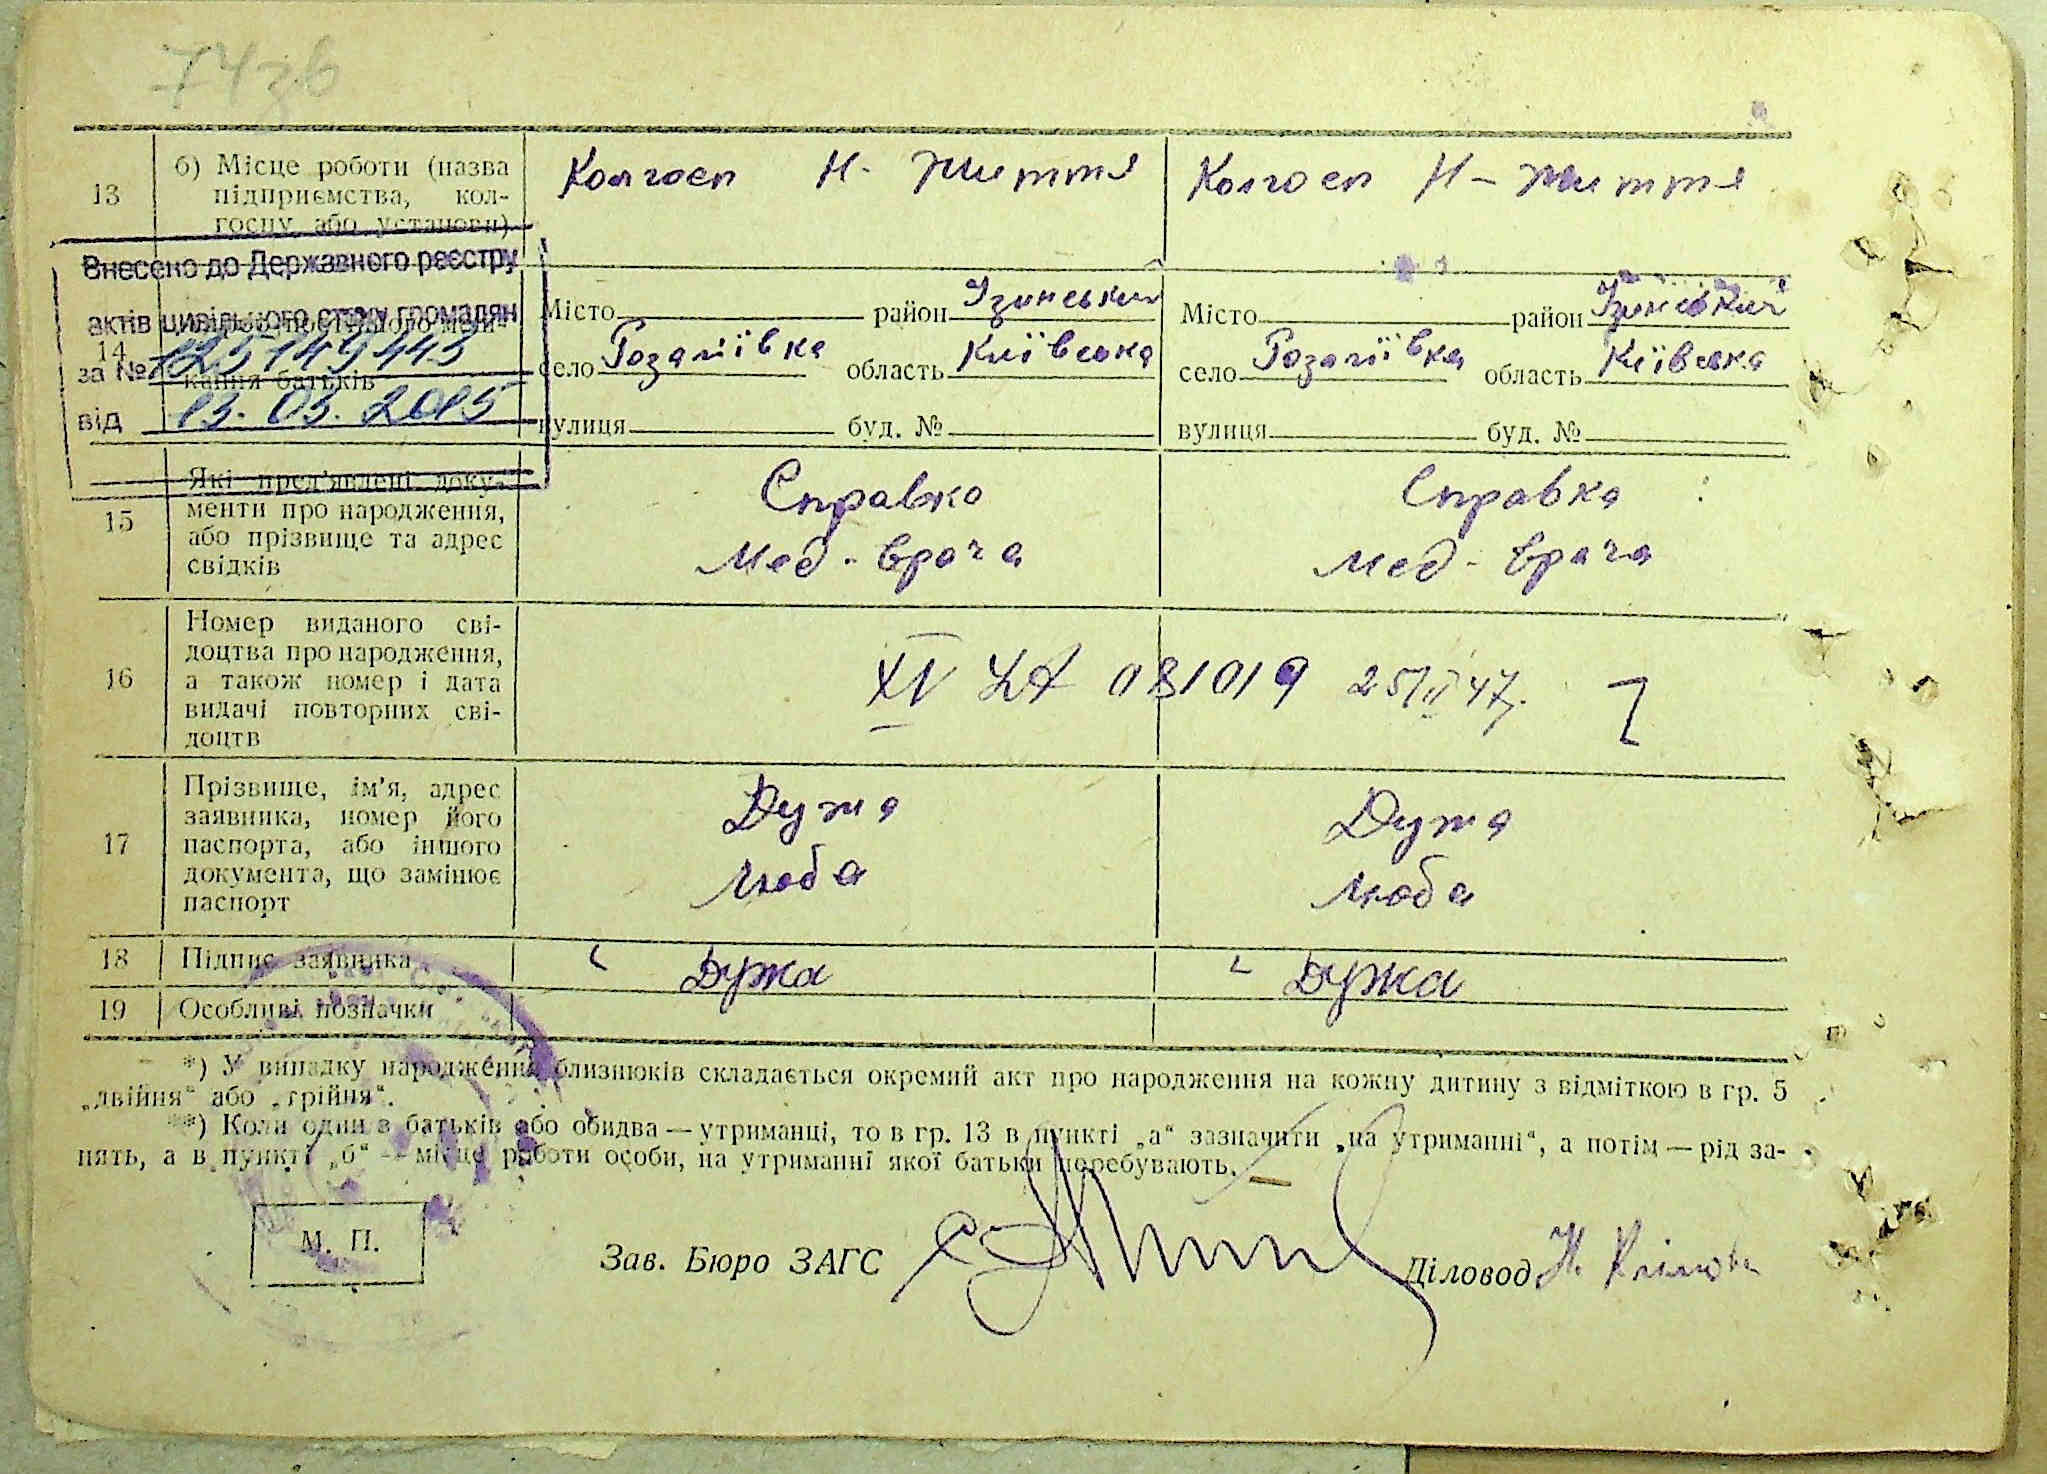 74зв
13
б) Місце роботи (назва
підприємства, кол-
госпу або установи)
Колгосп Н- Життя
Колгосп Н- Життя
Внесено до Державного реєстру
актів цивільного стану громадян
за №
від 13.03.2015
14
кання батьків
Місто район
село Розаліївка область Київська
вулиця буд. №
Місто район
село Розаліївка область Київська
вулиця буд. №
15
Які пред'явлені доку-
менти про народження,
або прізвище та адрес
свідків
Справка
Мед-врача
Справка
Мед-врача
16
Номер виданого сві-
доцтва про народження,
а також номер і дата
видачі повторних сві-
доцтв
081019 25/II 47
17
Прізвище, ім'я, адрес
заявника, номер його
паспорта, або іншого
документа, що замінює
паспорт
Дужа
Люба
Дужа
Люба
18
Підпис заявника
Дужа
Дужа
19
Особливі позначки
*) У випадку народження близнюків складається окремий акт про народження на кожну дитину з відміткою в гр. 5
„двійня“ або „трійня“.
**) Коли один з батьків або обидва — утриманці, то в гр. 13 в пункті „а“ зазначити „на утриманні“, а потім — рід за-
нять, а в пункті „б“ — місце роботи особи, на утриманні якої батьки перебувають.
М. П.
Зав. Бюро ЗАГС
Діловод